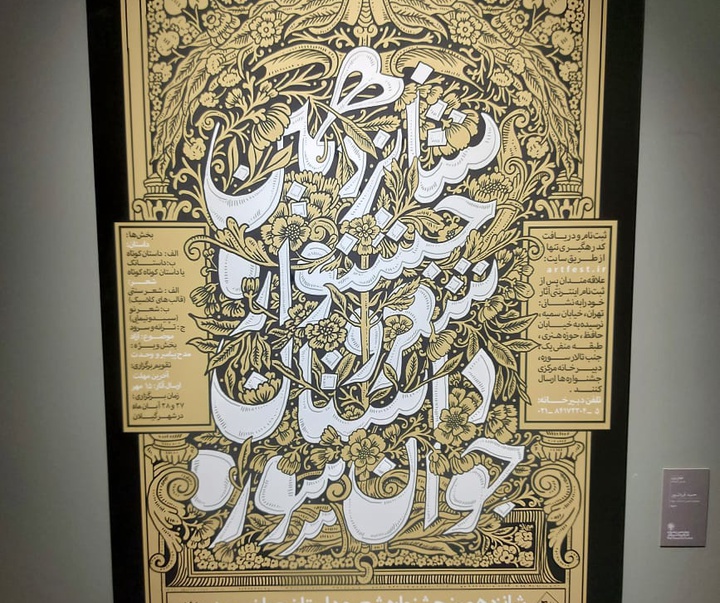 شانزدهمین
جشنواره
شعر و
داستان
جوان سوره
ثبت‌نام و دریافت
کد رهگیری تنها
از طریق سایت:
artfest.ir
علاقه‌مندان پس از
ثبت‌نام اینترنتی آثار
خود را به نشانی:
تهران، خیابان سمیه،
نرسیده به خیابان
حافظ، حوزه هنری،
طبقه منفی یک
جنب تالار سوره،
دبیرخانه مرکزی
جشنواره‌ها ارسال
کنند.
تلفن دبیرخانه:
۰۲۱-۸۴۱۷۲۳۰۴-۵
بخش‌ها:
داستان:
الف: داستان کوتاه
ب: داستانک
یا داستان کوتاه کوتاه
شعر:
الف: شعر سنتی
(قالب‌های کلاسیک)
ب: شعر نو
(سپید و نیمایی)
ج: ترانه و سرود
موضوع: آزاد
بخش ویژه:
مدح پیامبر و وحدت
تقویم برگزاری:
آخرین مهلت
ارسال آثار: ۱۵ مهر
زمان برگزاری:
۲۷ و ۲۸ آبان ماه
در شهر گیلان
شانزدهمین جشنواره شعر و داستان جوان سوره